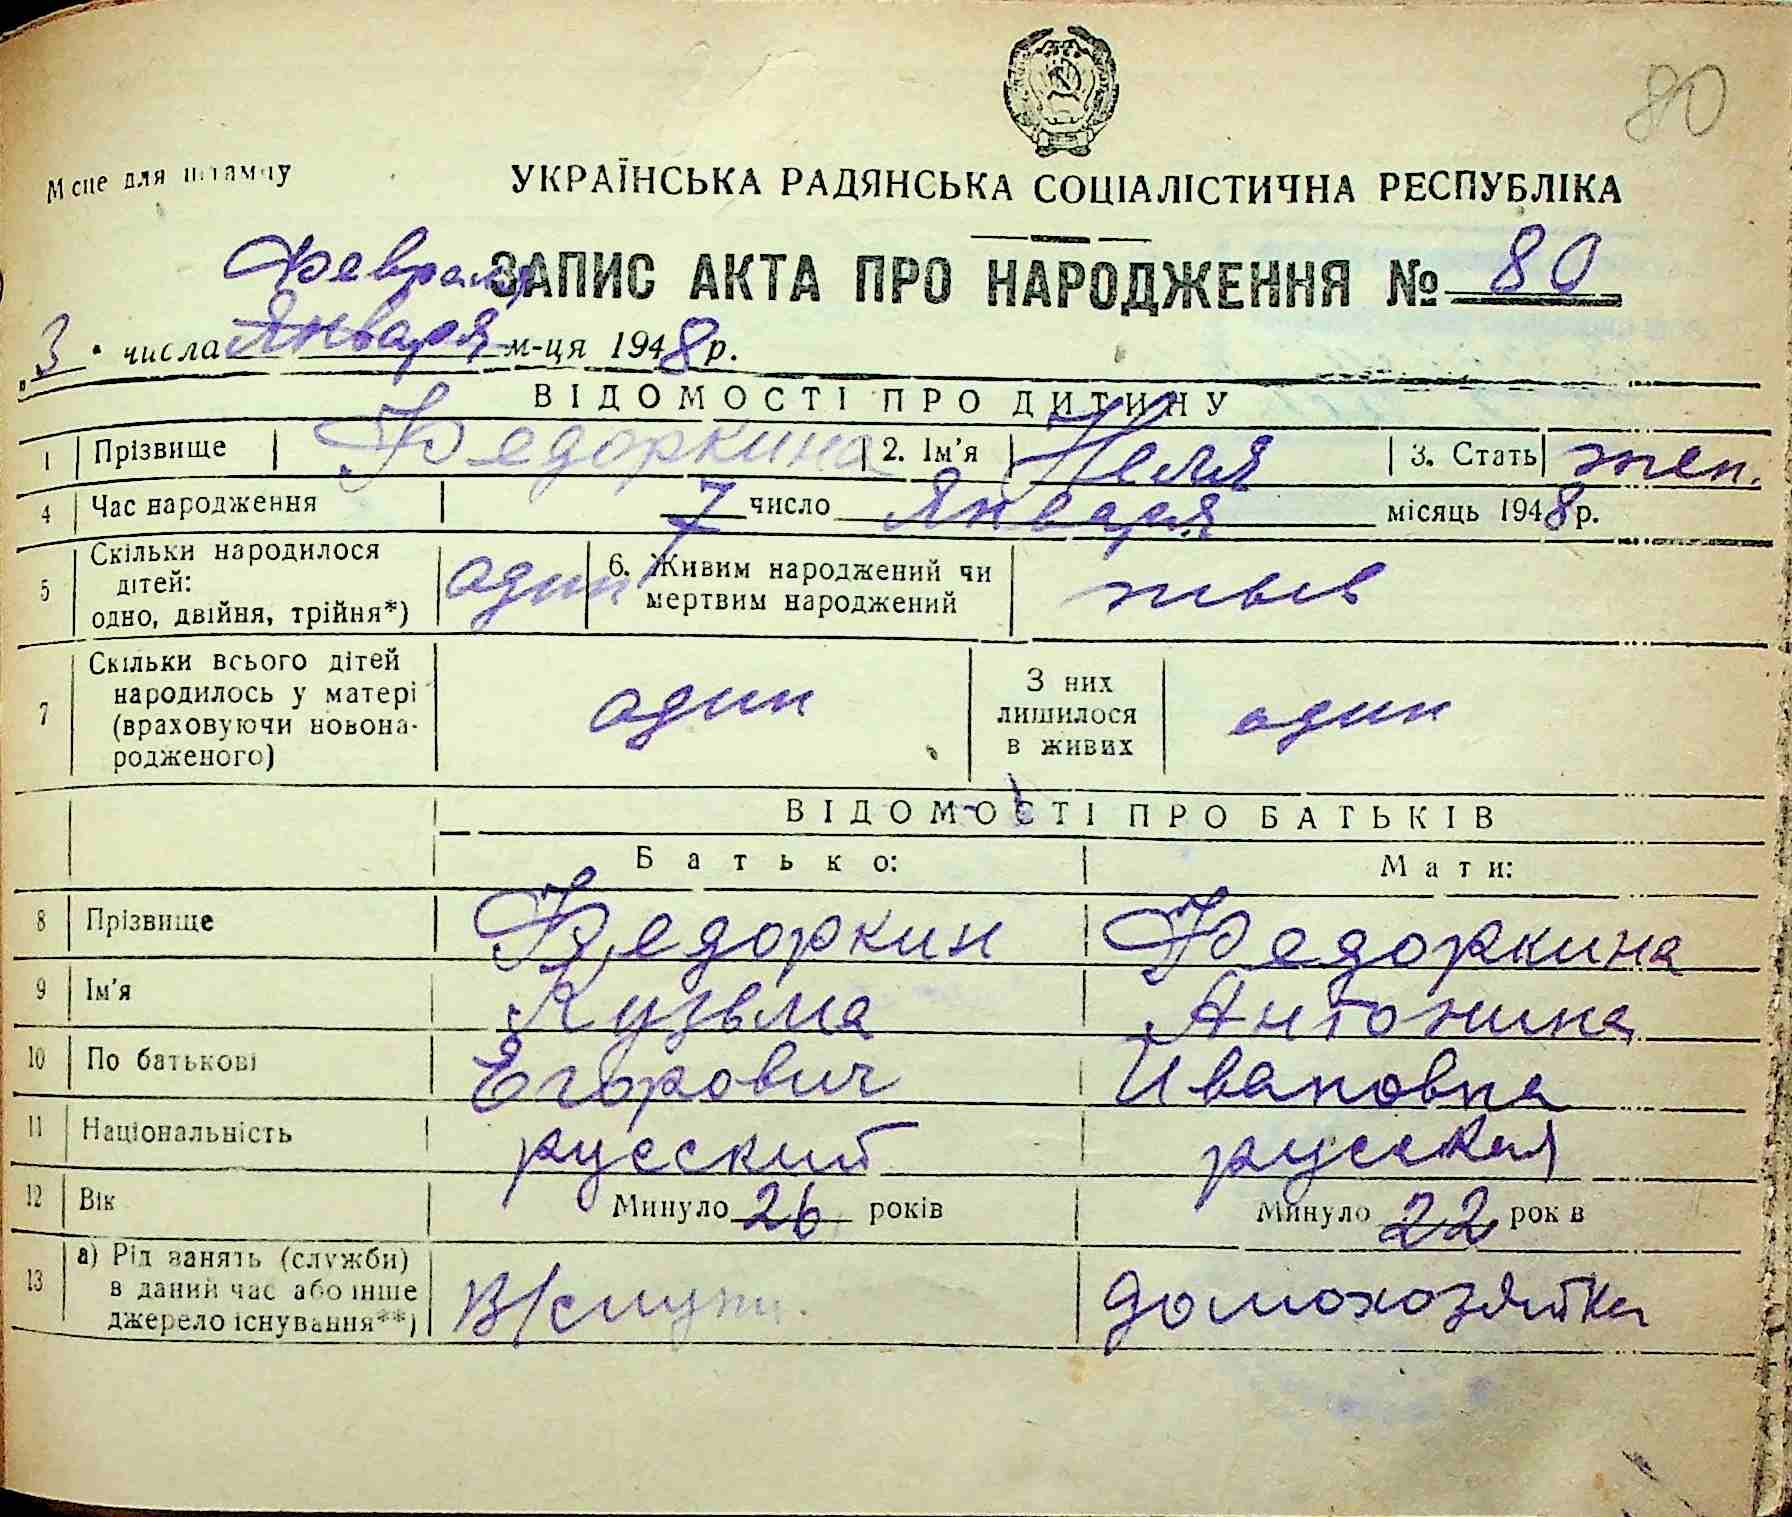 80
Місце для штампу
УКРАЇНСЬКА РАДЯНСЬКА СОЦІАЛІСТИЧНА РЕСПУБЛІКА
Февраля
ЗАПИС АКТА ПРО НАРОДЖЕННЯ № 80
„3“ числа Января м-ця 1948 р.
ВІДОМОСТІ ПРО ДИТИНУ
1 Прізвище Федоркина 2. Ім'я Неля 3. Стать жен.
4 Час народження 7 число Января місяць 1948 р.
5 Скільки народилося дітей: одно, двійня, трійня*) один 6. Живим народжений чи мертвим народжений
7 Скільки всього дітей народилось у матері (враховуючи новонародженого) один З них лишилося в живих один
ВІДОМОСТІ ПРО БАТЬКІВ
Батько: Мати:
8 Прізвище Федоркин Федоркина
9 Ім'я Кузьма Антонина
10 По батькові Егорович Ивановна
11 Національність русский русская
12 Вік Минуло 26 років Минуло 22 рок в
13 а) Рід занять (служби) в даний час або інше джерело існування**) В/служ. домохозяйка